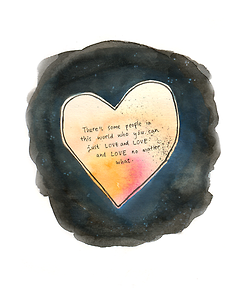 There's some people in
this world who you can
just LOVE and LOVE
and LOVE no matter
what.